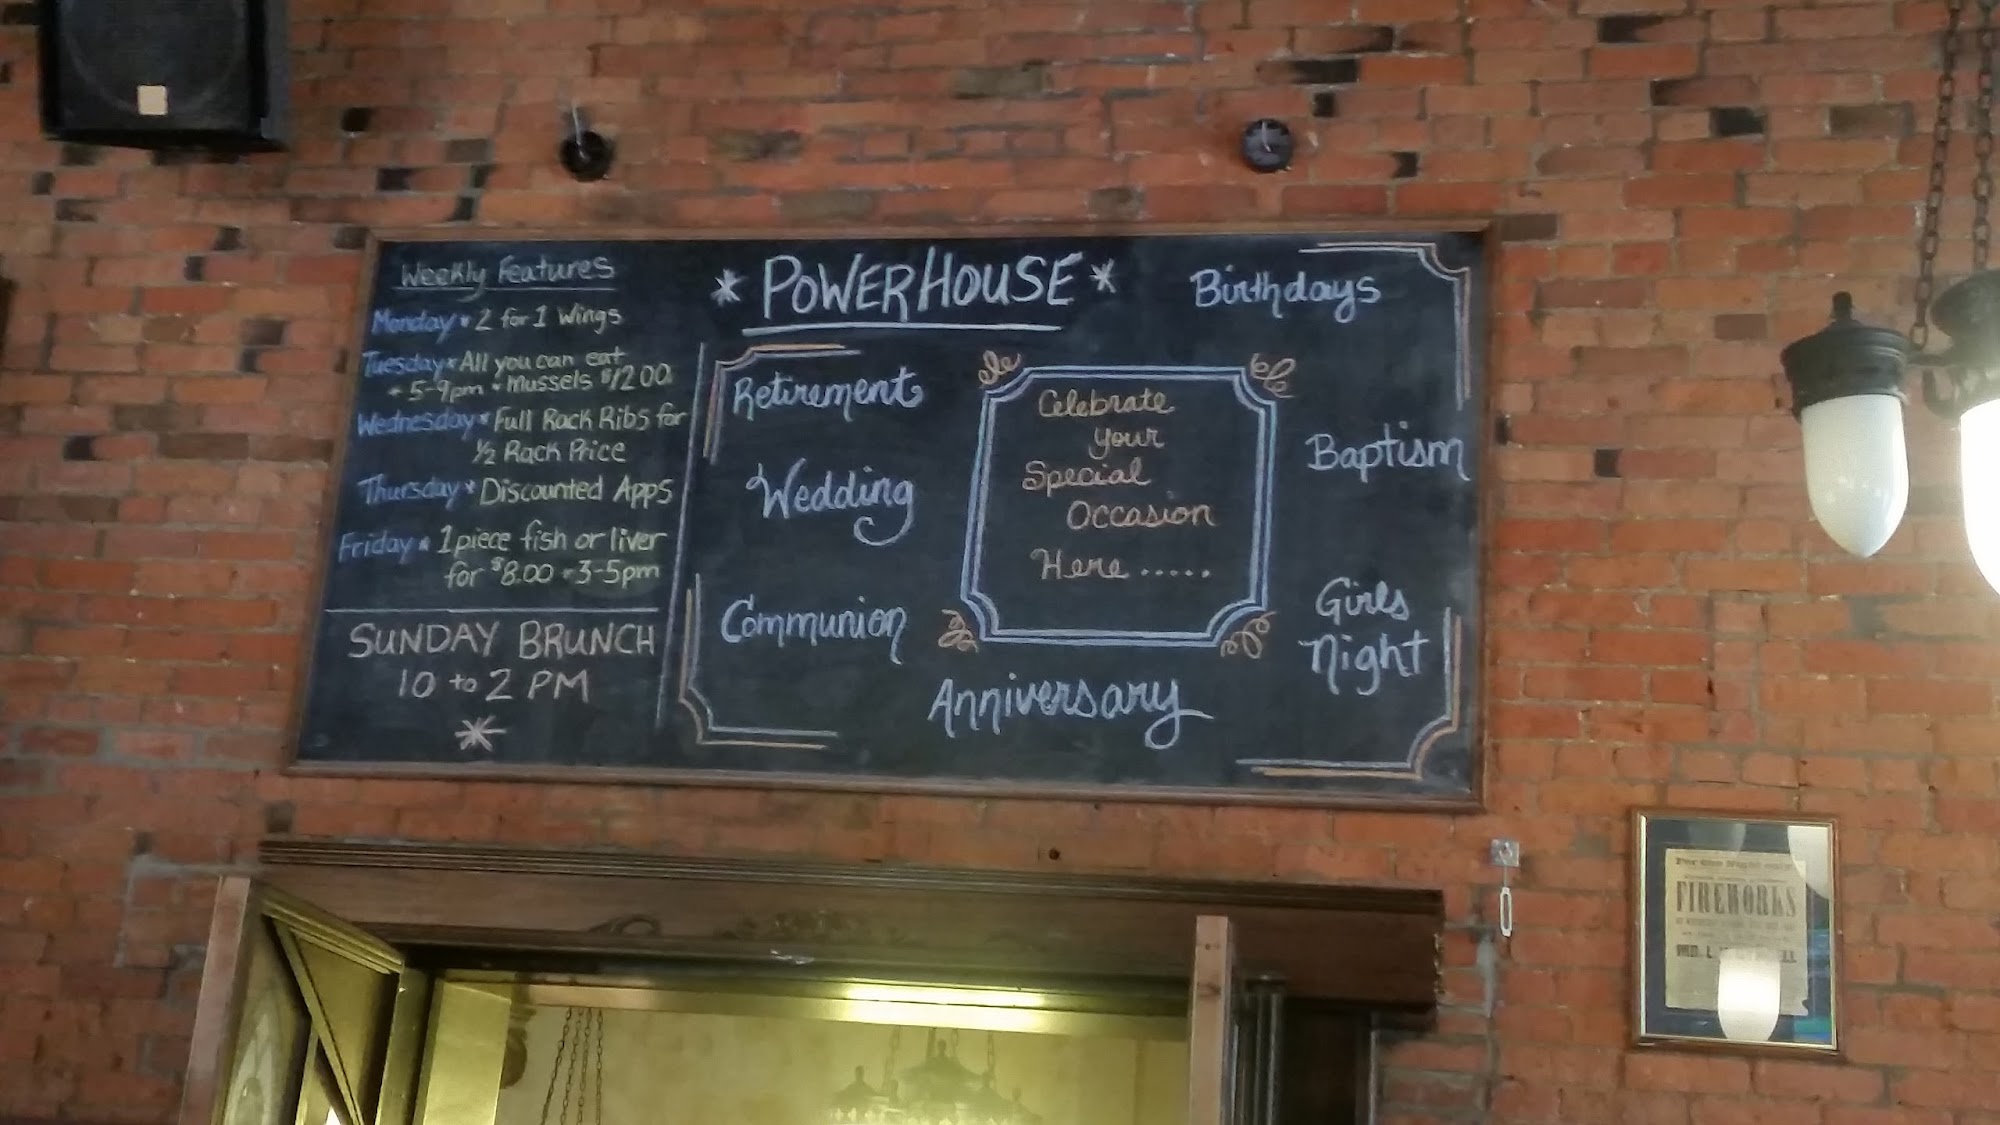 Weekly Features
Monday * 2 for 1 Wings
Tuesday * All you can eat
* 5-9pm * Mussels $12.00
Wednesday * Full Rack Ribs for
½ Rack Price
Thursday * Discounted Apps
Friday * 1 piece fish or liver
for $8.00 * 3-5pm
SUNDAY BRUNCH
10 to 2 PM
* POWERHOUSE *
Retirement
Wedding
Communion
Celebrate
your
Special
Occasion
Here .....
Anniversary
Birthdays
Baptism
Girls
Night
FIREWORKS